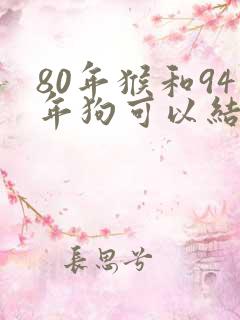 80年猴和94
年狗可以結
長思兮